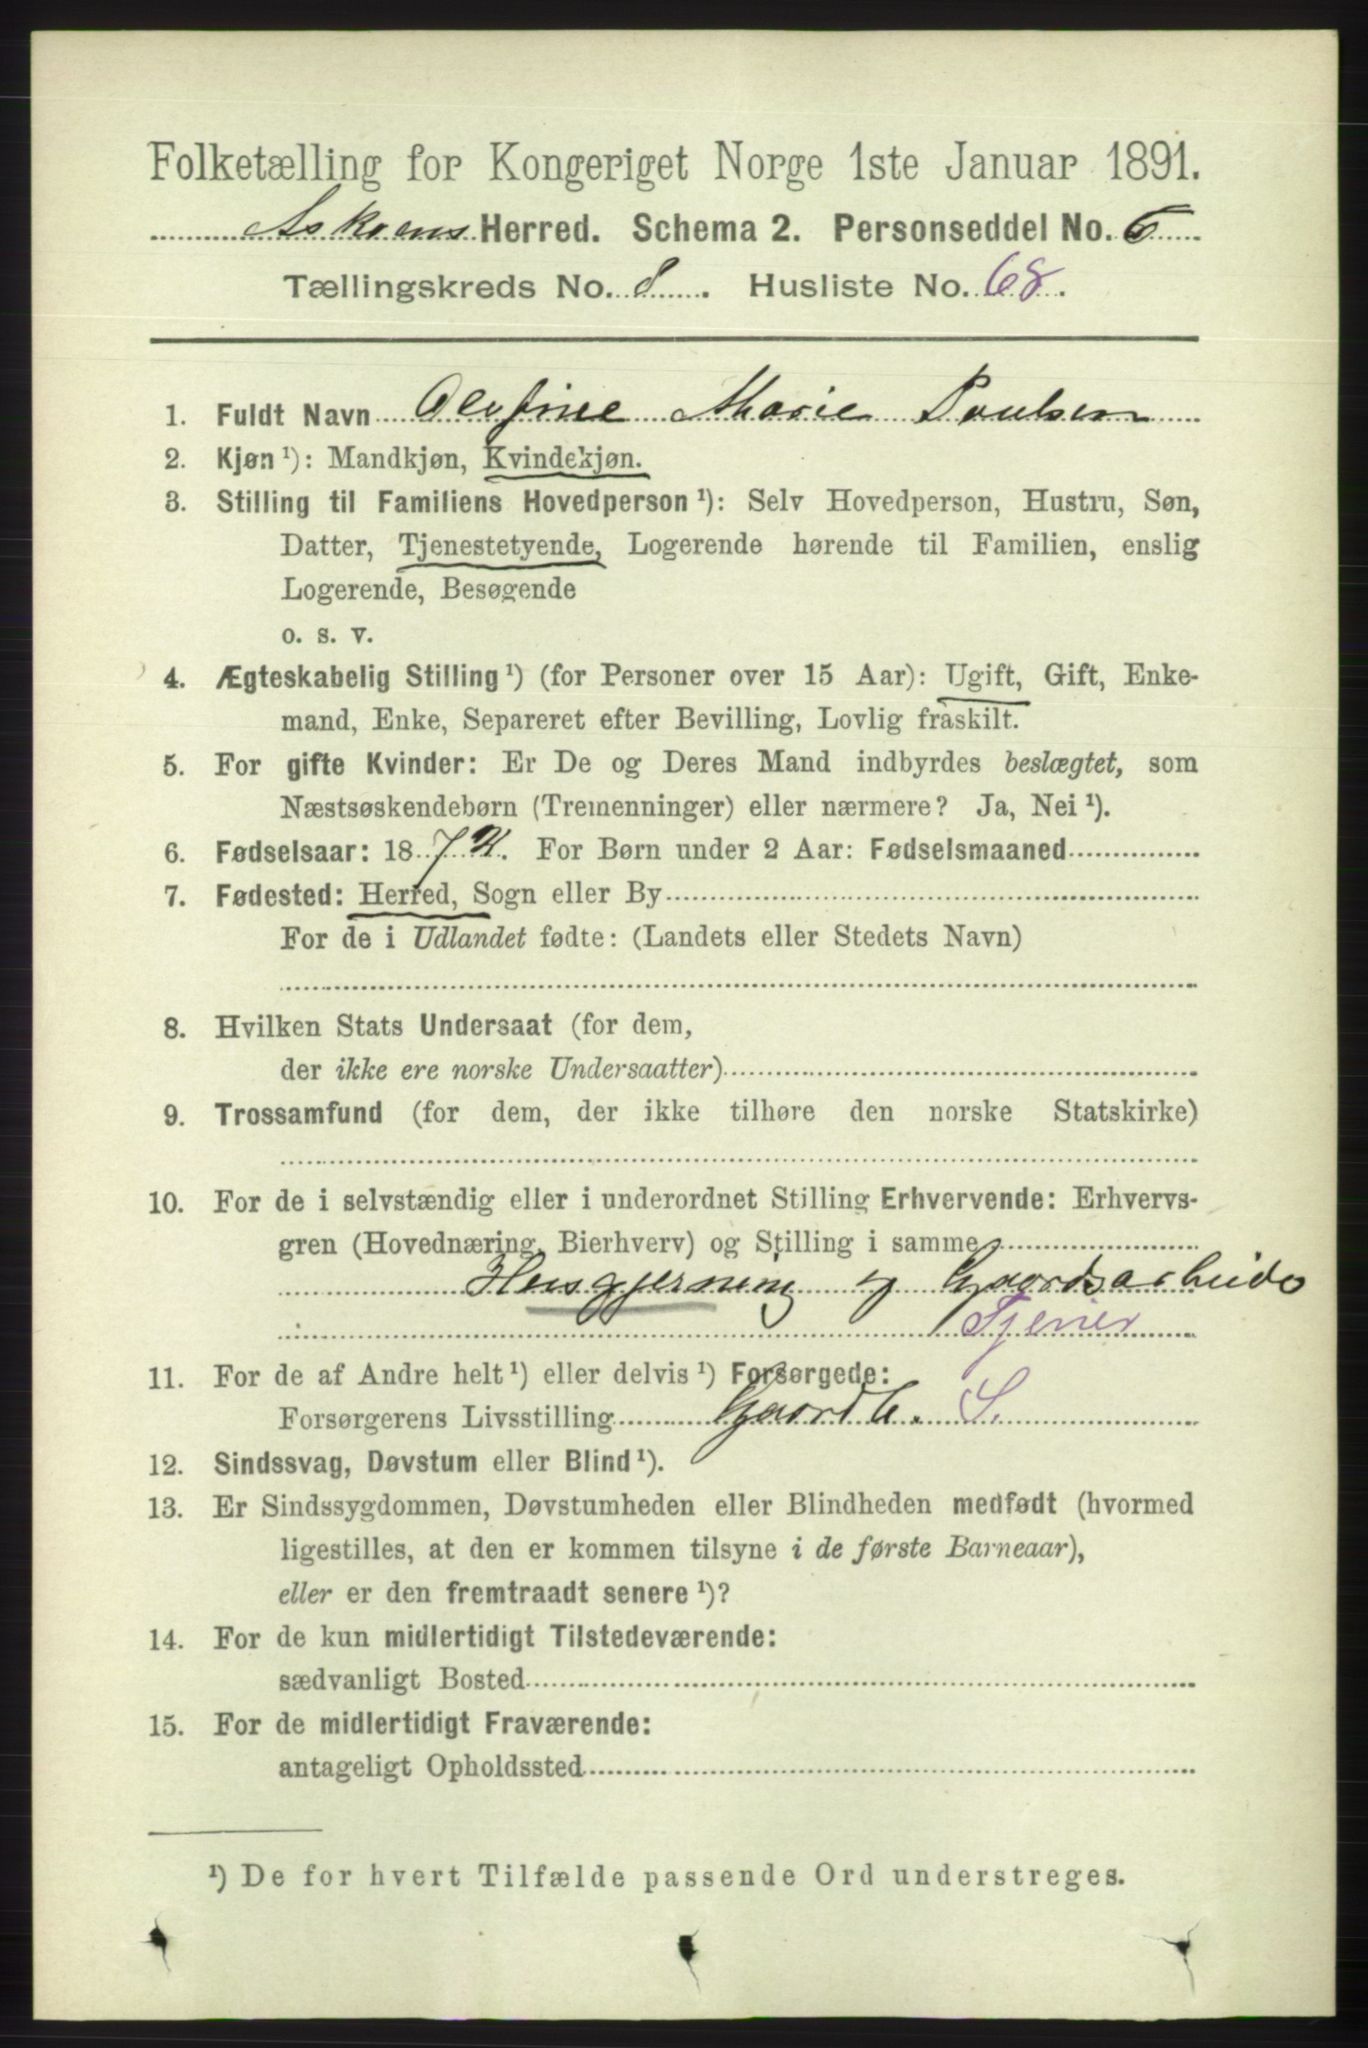 Folketælling for Kongeriget Norge 1ste Januar 1891.
Askøens Herred. Schema 2. Personseddel No. 6
Tællingskreds No. 8. Husliste No. 68.
1. Fuldt Navn Olufine Marie Poulsen
2. Kjøn ¹): Mandkjøn, Kvindekjøn.
3. Stilling til Familiens Hovedperson ¹): Selv Hovedperson, Hustru, Søn,
Datter, Tjenestetyende, Logerende hørende til Familien, enslig
Logerende, Besøgende
o. s. v.
4. Ægteskabelig Stilling ¹) (for Personer over 15 Aar): Ugift, Gift, Enke-
mand, Enke, Separeret efter Bevilling, Lovlig fraskilt.
5. For gifte Kvinder: Er De og Deres Mand indbyrdes beslægtet, som
Næstsøskendebørn (Tremenninger) eller nærmere? Ja, Nei ¹).
6. Fødselsaar: 18 For Børn under 2 Aar: Fødselsmaaned
7. Fødested: Herred, Sogn eller By
For de i Udlandet fødte: (Landets eller Stedets Navn)
8. Hvilken Stats Undersaat (for dem,
der ikke ere norske Undersaatter)
9. Trossamfund (for dem, der ikke tilhøre den norske Statskirke)
10. For de i selvstændig eller i underordnet Stilling Erhvervende: Erhvervs-
gren (Hovednæring, Bierhverv) og Stilling i samme
Husgjerning og Gaardsarbeide
Tjener
11. For de af Andre helt ¹) eller delvis ¹) Forsørgede:
Forsørgerens Livsstilling Gaardb. S.
12. Sindssvag, Døvstum eller Blind ¹).
13. Er Sindssygdommen, Døvstumheden eller Blindheden medfødt (hvormed
ligestilles, at den er kommen tilsyne i de første Barneaar),
eller er den fremtraadt senere ¹)?
14. For de kun midlertidigt Tilstedeværende:
sædvanligt Bosted
15. For de midlertidigt Fraværende:
antageligt Opholdssted
¹) De for hvert Tilfælde passende Ord understreges.